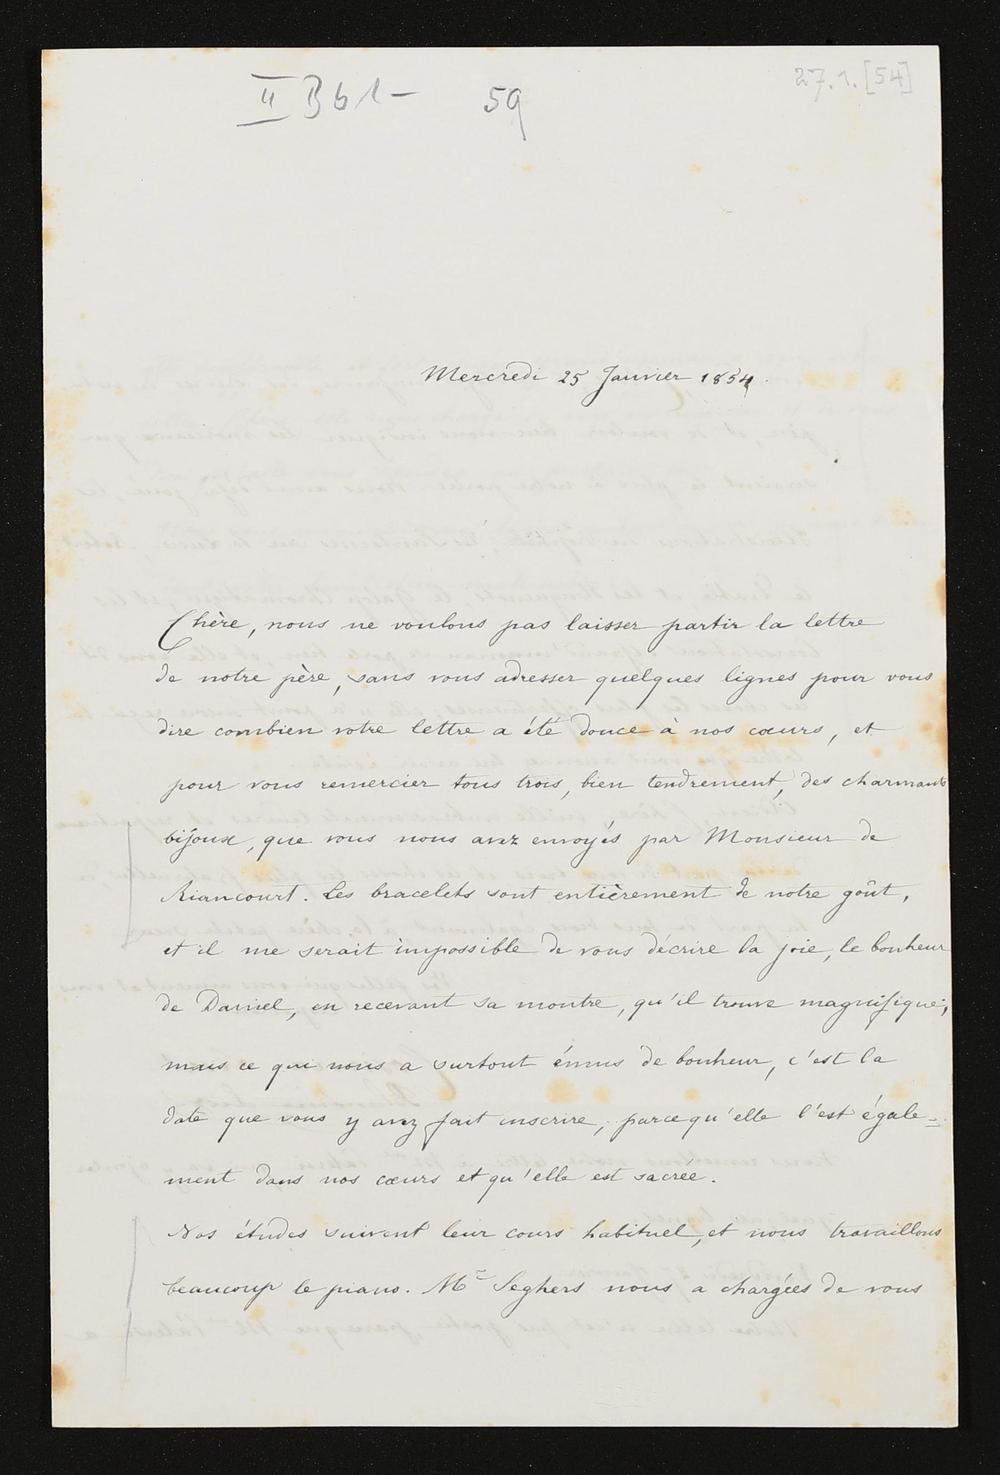 II Bb1- 59
27.1.[54]
Mercredi 25 Janvier 1854.
Chère, nous ne voulons pas laisser partir la lettre
de notre père, sans vous adresser quelques lignes pour vous
dire combien votre lettre a été douce à nos cœurs, et
pour vous remercier tous trois, bien tendrement, des charmants
bijoux, que vous nous avez envoyés par Monsieur de
Riancourt. Les bracelets sont entièrement de notre goût,
et il me serait impossible de vous décrire la joie, le bonheur
de Daniel, en recevant sa montre, qu'il trouve magnifique;
mais ce qui nous a surtout émus de bonheur, c'est la
date que vous y avez fait inscrire, parcequ'elle l'est égale=
ment dans nos cœurs et qu'elle est sacrée.
Nos études suivent leur cours habituel, et nous travaillons
beaucoup le piano. Mr Seghers nous a chargées de vous